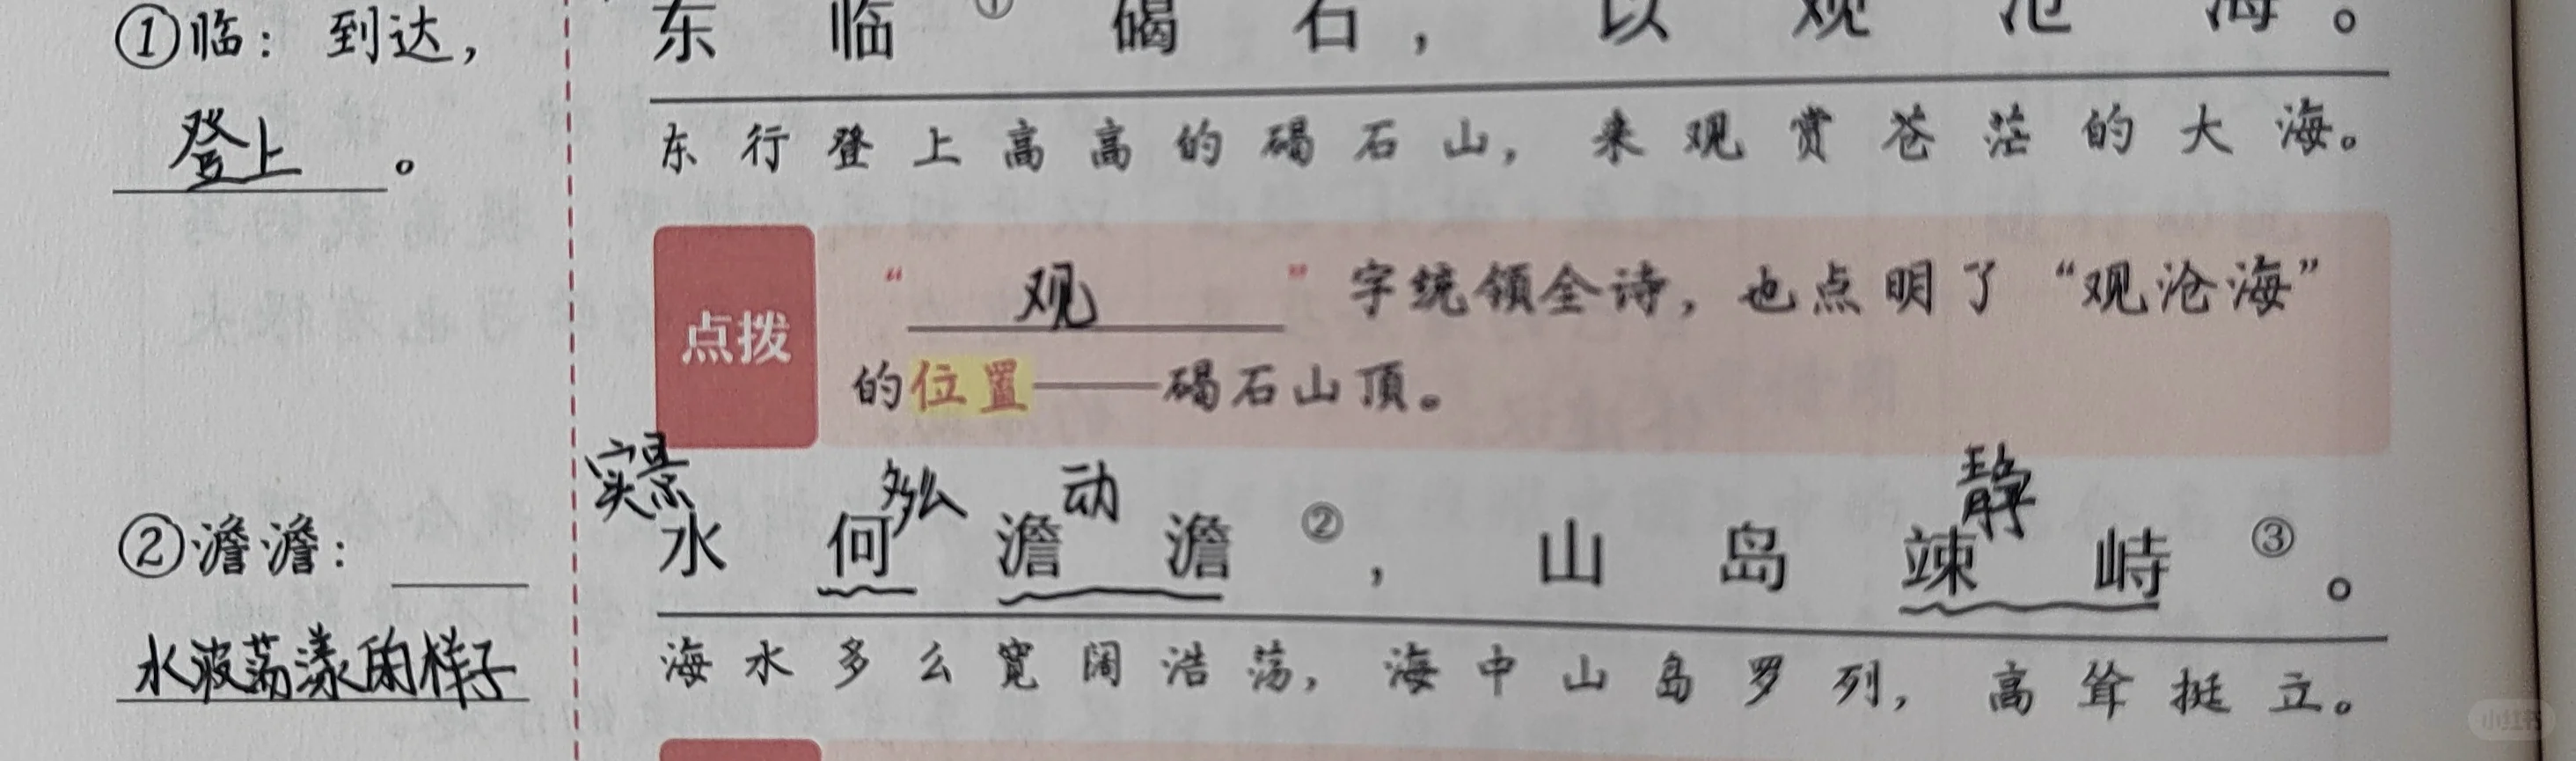 ①临：到达，
登上。
东临①碣石，以观沧海。
东行登上高高的碣石山，来观赏苍茫的大海。
点拨
“观”字统领全诗，也点明了“观沧海”
的位置——碣石山顶。
实景 多么 动 静
②澹澹：
水波荡漾的样子
水何澹澹②，山岛竦峙③。
海水多么宽阔浩荡，海中山岛罗列，高耸挺立。
小红书